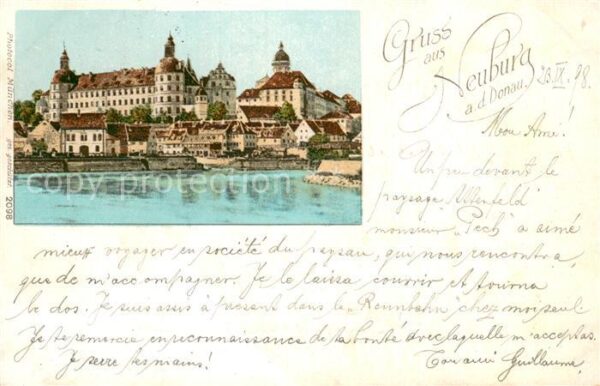 Gruss
aus
Neuburg
a.d. Donau.
23.IX.98.
Photocol. München. ges. geschützt. 2098
copyright
Mon Ami!
Un peu devant le
paysage Altenfeld
monsieur „Pech" a aimé
mieux voyager en société du paysan, qui nous rencontra,
que de m'accompagner. Je le laissa courrir et tourna
le dos. Je suis assis à présent dans le „Rennbahn" chez moi seul
Je te remercie en reconnaissance de ta bonté avec laquelle m'acceptas.
Je serre tes mains! Ton ami Guillaume.